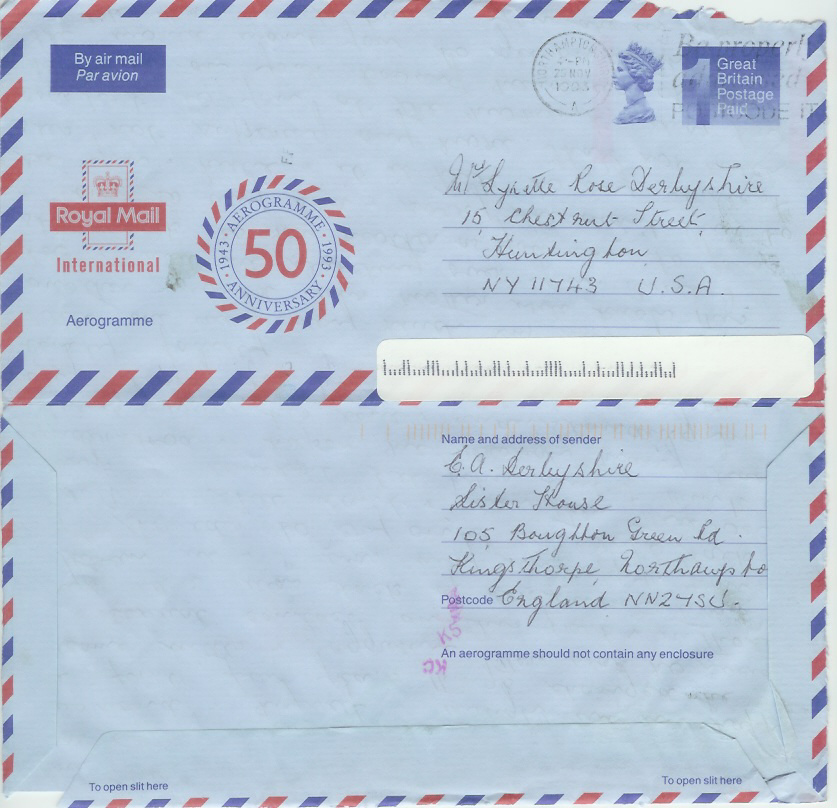 By air mail
Par avion
NORTHAMPTON
25 NOV
1993
A
Be properly
PCODE IT
1 Great
Britain
Postage
Paid
Royal Mail
International
Aerogramme
1943 · AEROGRAMME · 1993
50
ANNIVERSARY
Lynette Rose Derbyshire
15 Chestnut Street,
Huntington
NY 11743 U.S.A.
Name and address of sender
E.A. Derbyshire
Sister House
105 Boughton Green Rd.
Kingsthorpe, Northampto
Postcode England NN2 7SU.
An aerogramme should not contain any enclosure
KC
To open slit here
To open slit here